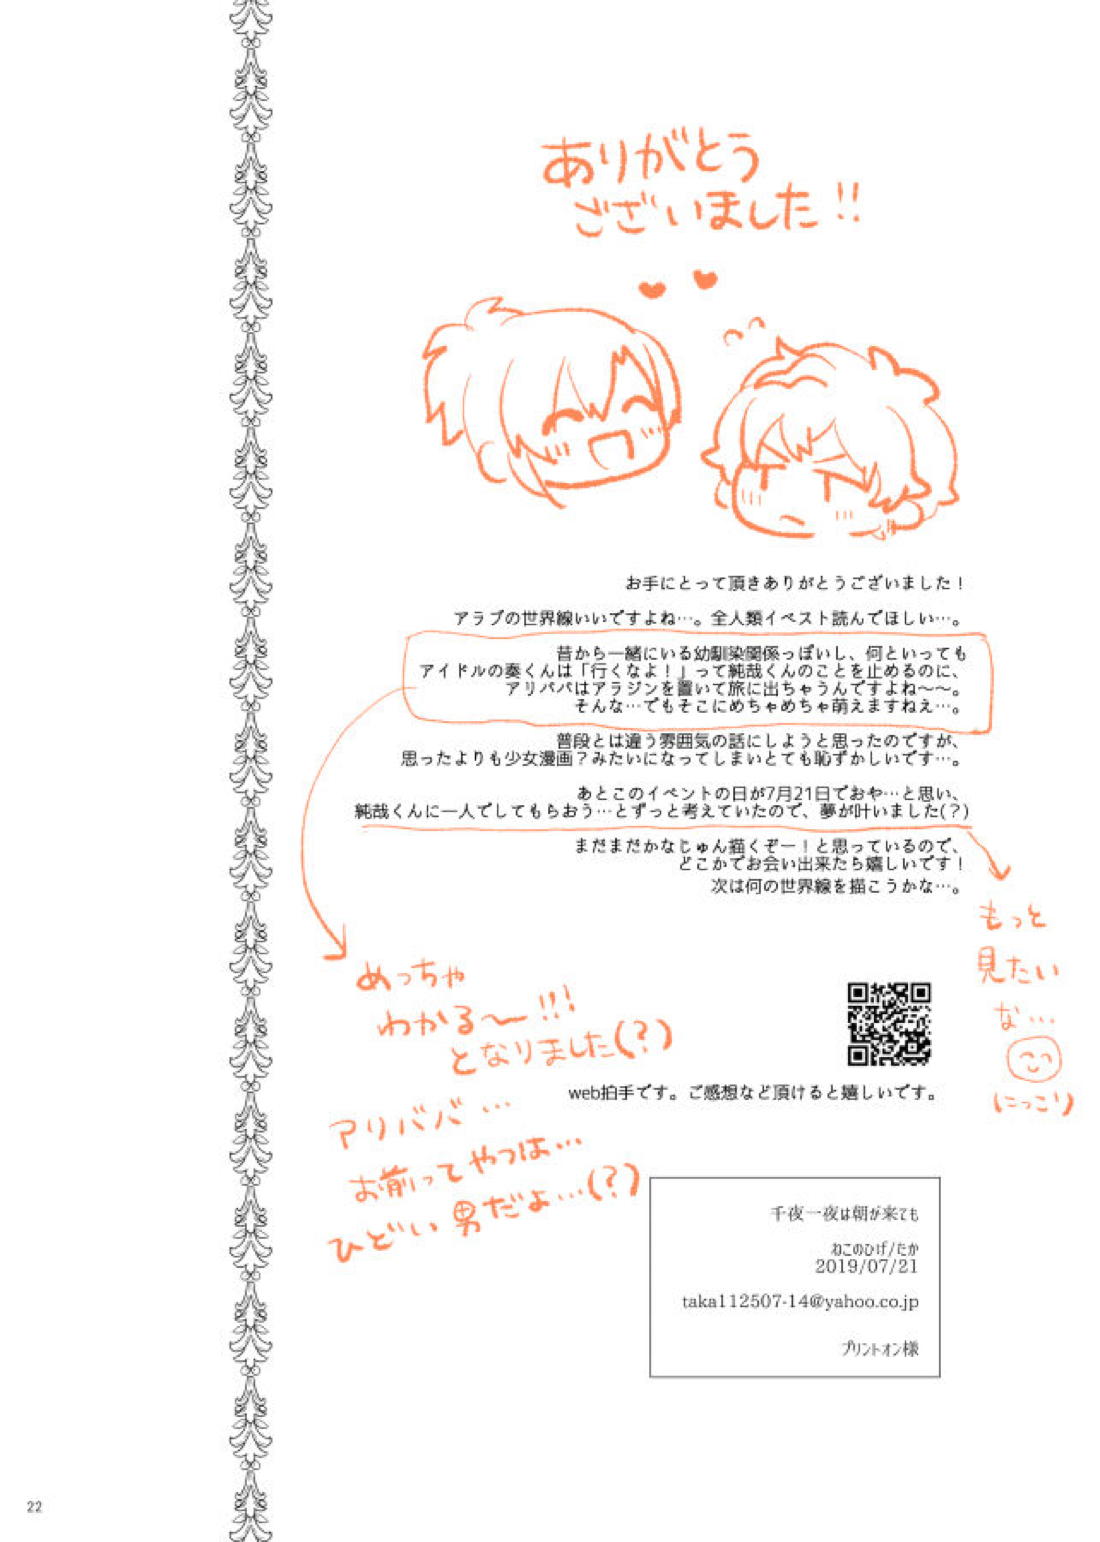 ありがとう
ございました!!
お手にとって頂きありがとうございました！
アラブの世界線いいですよね…。全人類イベスト読んでほしい…。
昔から一緒にいる幼馴染関係っぽいし、何といっても
アイドルの奏くんは「行くなよ！」って純哉くんのことを止めるのに、
アリババはアラジンを置いて旅に出ちゃうんですよね〜〜。
そんな…でもそこにめちゃめちゃ萌えますねえ…。
普段とは違う雰囲気の話にしようと思ったのですが、
思ったよりも少女漫画？みたいになってしまいとても恥ずかしいです…。
あとこのイベントの日が7月21日でおや…と思い、
純哉くんに一人でしてもらおう…とずっと考えていたので、夢が叶いました(?)
まだまだかなじゅん描くぞー！と思っているので、
どこかでお会い出来たら嬉しいです！
次は何の世界線を描こうかな…。
もっと
見たい
な…
(にっこり)
めっちゃ
わかる〜!!!
となりました(?)
アリババ…
お前ってやつは…
ひどい男だよ…(?)
web拍手です。ご感想など頂けると嬉しいです。
千夜一夜は朝が来ても
ねこのひげ/たか
2019/07/21
taka112507-14@yahoo.co.jp
プリントオン様
22